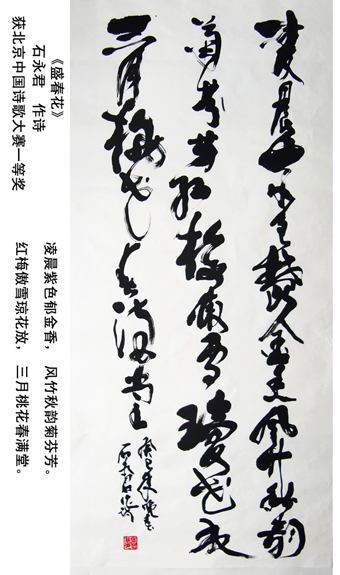 凌晨紫色郁金香风竹秋韵
菊芬芳红梅傲雪琼花放
三月桃花春满堂
石永君作诗
《盛春花》
石永君 作诗
获北京中国诗歌大赛一等奖
凌晨紫色郁金香， 风竹秋韵菊芬芳。
红梅傲雪琼花放， 三月桃花春满堂。